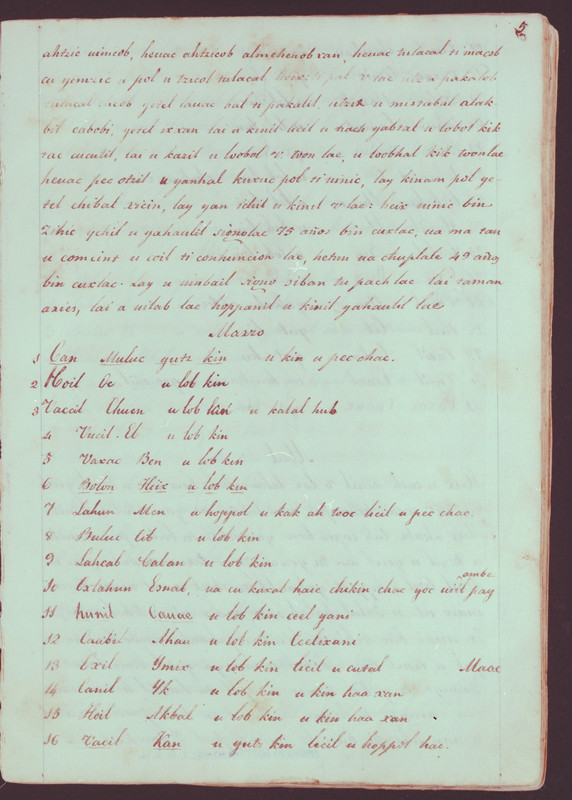 5
ahtzic uincob, heuac ahtzicob almehenob xan, heuac tulacal ti macob
cu yemzic u pol u tzicol tulacal
tulacal uincob yetel lauac bal u pakalil, utzil u mis xabal alak
bil cabobi, yetel xxan lai u kinil licil u hach yabtal u lobol kik
tac cucutil, lai u kazil u loobol u uon lae, u toobhal kik uoonlae
heuac pec otzil u yanhal kuxuc pol ti uinic, lay kinam pol ye-
tel chibal xicin, lay yan ichil u kinil u lae: heix uinic bin
zihic ychil u yahaulil signolae 75 años bin cuxlac, ua ma tan
u comcint u cuil ti conhuncion lae, hetun ua chuplale 49 años
bin cuxlac. Lay u uinbail signo ziban tu pach lae lai taman
axies, lai a uilab lae hoppanil u kinil yahaulil lae
Marzo
1 Can Muluc yutz kin u kin u pec chac.
2 Hoil Oc u lob kin
3 Uaccil Chuen u lob kin u katal hub
4 Vucil. Eb u lob kin
5 Vaxac Ben u lob kin
6 Bolon Hiix u lob kin
7 Lahun Men u hoppol u kak ah tooc licil u pec chac.
8 Buluc Cib u lob kin
9 Lahcab Caban u lob kin
10 Oxlahun Esnab, ua cu kaxal haie chikin chac yoc uiil pay ombe
11 hunil Cauac u lob kin ceel yani
12 Cabil Ahau u lob kin Ceelixani
13 Oxil Ymix u lob kin licil u cutal Maac
14 Canil Yk u lob kin u kin haa xan
15 Hoil Akbal u lob kin u kin haa xan
16 Uacil Kan u yutz kin licil u hoppol hac.